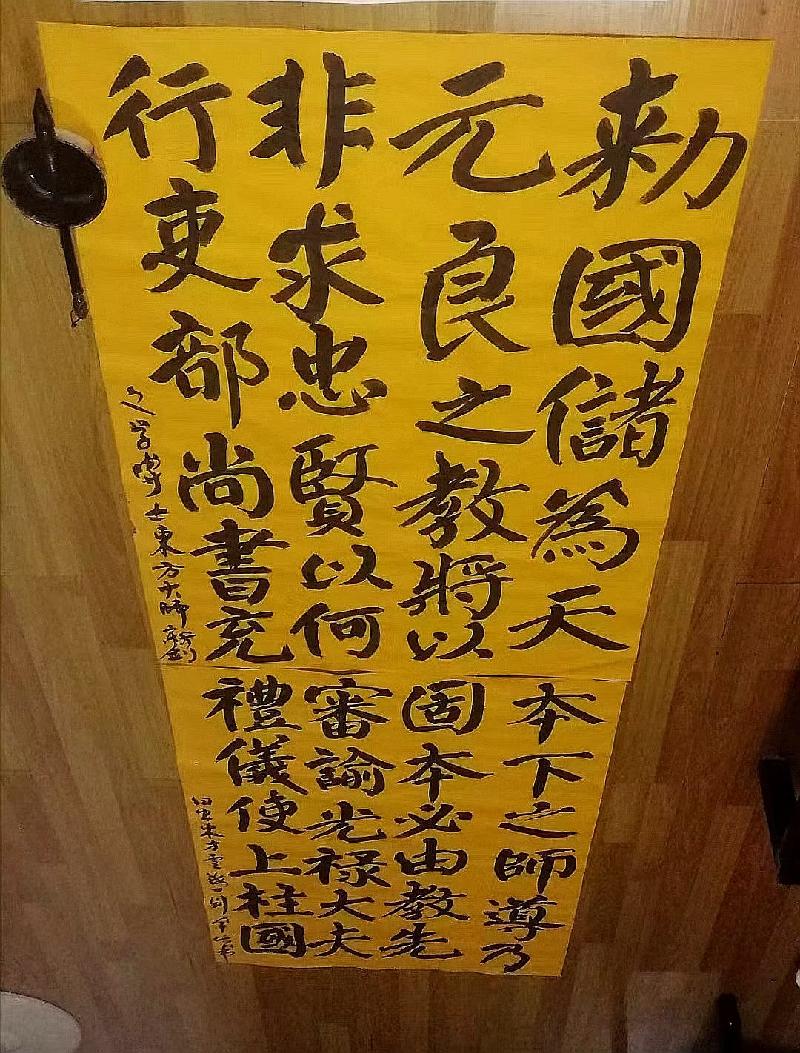 勑國儲為天本下之師導乃
元良之教將以固本必由教先
非求忠賢以何審諭光禄大夫
行吏部尚書充禮儀使上柱國
士東方大師
東方